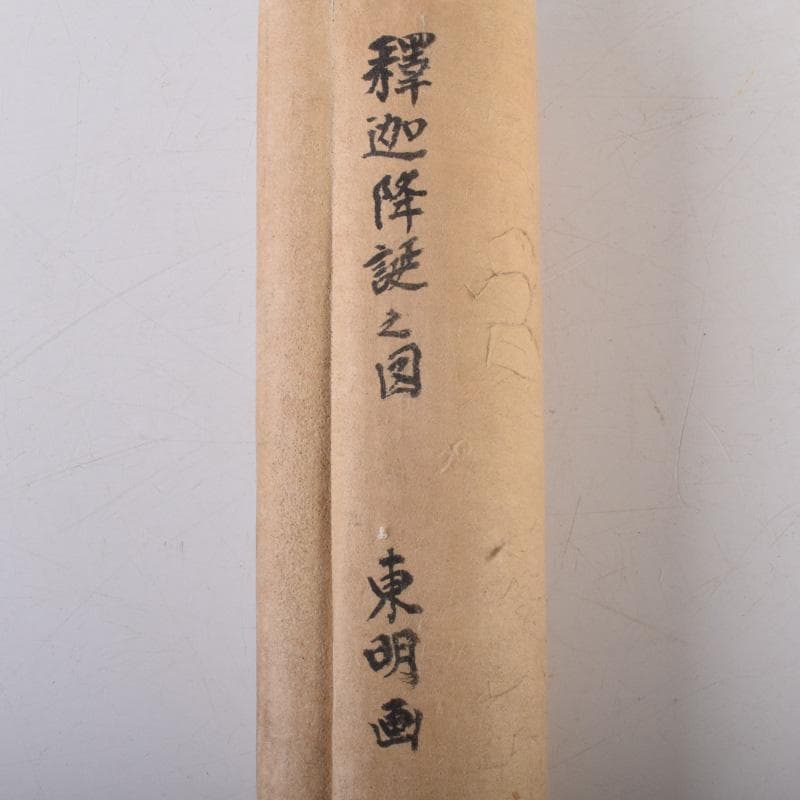 釋迦降誕之図
東明画